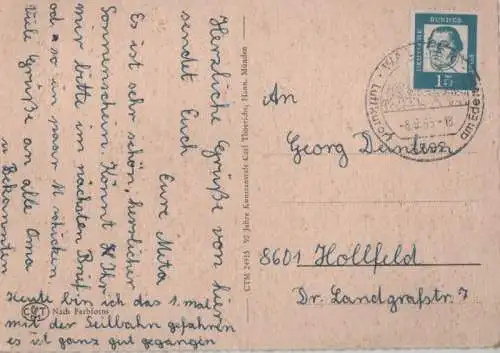 Herzliche Grüße von hier
sendet Euch
Eure Meta
Es ist sehr schön, herrlicher
Sonnenschein. Könnt Ihr
mir bitte im nächsten Brief
od. so ein paar M schicken.
Viele Grüße an alle Oma
u Bekannten
Heute bin ich das 1. mal
mit der Seilbahn gefahren
es ist ganz gut gegangen
Nach Farbfotos
CTM 24915 90 Jahre Kunstanstalt Carl Thoericht, Hann. Münden
DEUTSCHE
BUNDES
15
Luftkurort
am Eder
An
Georg
8601 Hollfeld
Dr. Landgrafstr. 7